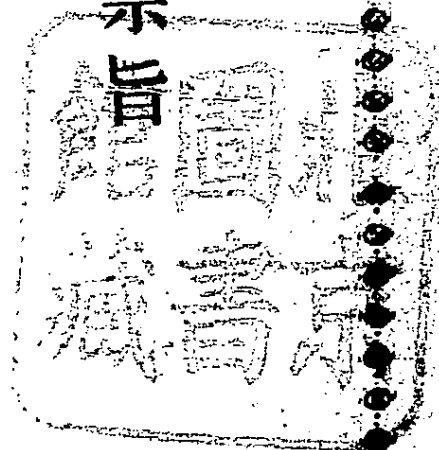 宗旨
圖書
館藏